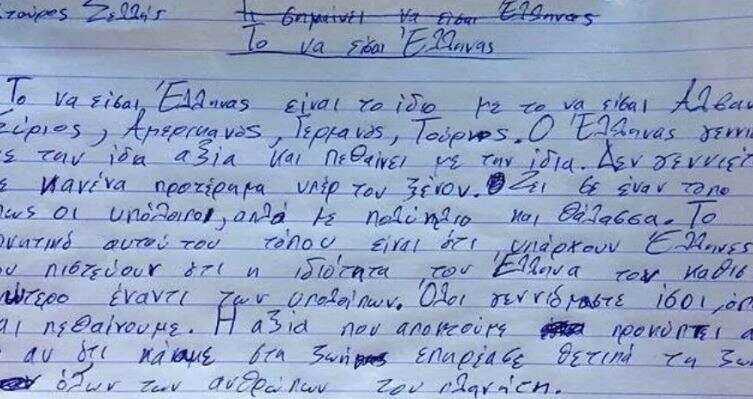 Ζελλής Τι σημαίνει να είσαι Έλληνας
Το να είσαι Έλληνας
Το να είσαι Έλληνας είναι το ίδιο με το να είσαι Αλβα
ύριος, Αμερικανός, Γερμανός, Τούρκος. Ο Έλληνας γεννι
με την ίδια αξία και πεθαίνει με την ίδια. Δεν γεννιέτ
ε κανένα προτέρημα υπέρ του ξένου. Ζει σε έναν τόπο
πως οι υπόλοιποι, απλά με πολύ ήλιο και θάλασσα. Το
ρνητικό αυτού του τόπου είναι ότι υπάρχουν Έλληνες
ου πιστεύουν ότι η ιδιότητα του Έλληνα τον καθισ
ώτερο έναντι των υπολοίπων. Όλοι γεννιόμαστε ίσοι, όπ
αι πεθαίνουμε. Η αξία που αποκτούμε προκύπτει α
ο αν ότι κάναμε στη ζωή επηρέασε θετικά τη ζω
όλων των ανθρώπων του πλανήτη.